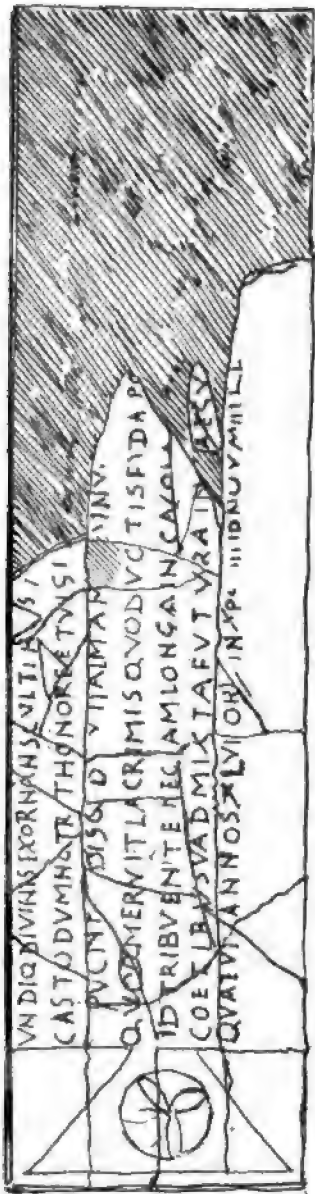 VNDIQDIVINAS EXORNANS CVLTI SI
CASTODVMNQ TR THONOREETVISI
PVCINT DISG D VITALMAR INV
QVODMERVITLACRIMISQVODVCTISFIDAPO
IDTRIBVENTEHECIAMLONGAIN CAVOL
COETIBVSVADMIXTAFVTVRAIN AESV
QVAEVIXI ANNOSXLVII OHI INXPC IIIIDNOVVMIIILL